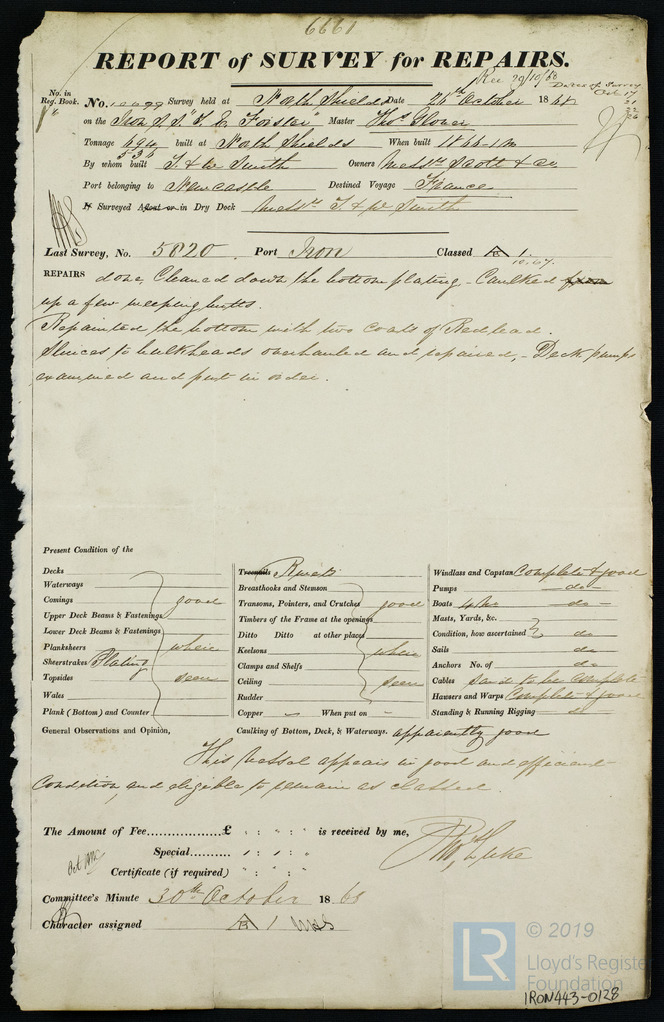 6661
REPORT of SURVEY for REPAIRS.
Rec 29/10/68
Dates of Survey
Oct. 17
21
22
26
No. in Reg. Book. No. Survey held at North Shields Date 26th October 1868
on the Iron S.S. "T. E. Forster" Master Thos. Glover
Tonnage 694 built at North Shields When built 1866-1m
536
By whom built T. & W. Smith Owners Messrs Scott & Co
Port belonging to Newcastle Destined Voyage France
If Surveyed Afloat or in Dry Dock Messrs T. & W. Smith
Last Survey, No. 5820 Port Iron Classed A 1.
10.67.
REPAIRS done, Cleaned down the bottom plating - Caulked
up a few weeping butts.
Repainted the bottom with two coats of Redlead.
Sluices to bulkheads overhauled and repaired, - Deck pumps
examined and put in order.
Present Condition of the
Decks
Waterways
Comings good
Upper Deck Beams & Fastenings
Lower Deck Beams & Fastenings
Planksheers where
Sheerstrakes Plating
Topsides seen
Wales
Plank (Bottom) and Counter
Treenails Rivets
Breasthooks and Stemson
Transoms, Pointers, and Crutches good
Timbers of the Frame at the openings
Ditto Ditto at other places
Keelsons where
Clamps and Shelfs
Ceiling seen
Rudder
Copper - When put on -
Windlass and Capstan Complete & good
Pumps - do -
Boats - do -
Masts, Yards, &c.
Condition, how ascertained do
Sails do
Anchors No. of do
Cables said to be complete
Hawsers and Warps Complete & good
Standing & Running Rigging do
General Observations and Opinion, Caulking of Bottom, Deck, & Waterways. apparently good
This vessel appears in good and efficient
Condition, and eligible to remain as classed.
The Amount of Fee...............£ : : : is received by me,
Special.......... : : :
Certificate (if required) : : :
Committee's Minute 30th October 1868
Character assigned A 1
© 2019
LR
Lloyd's Register
Foundation
IRON443-0128